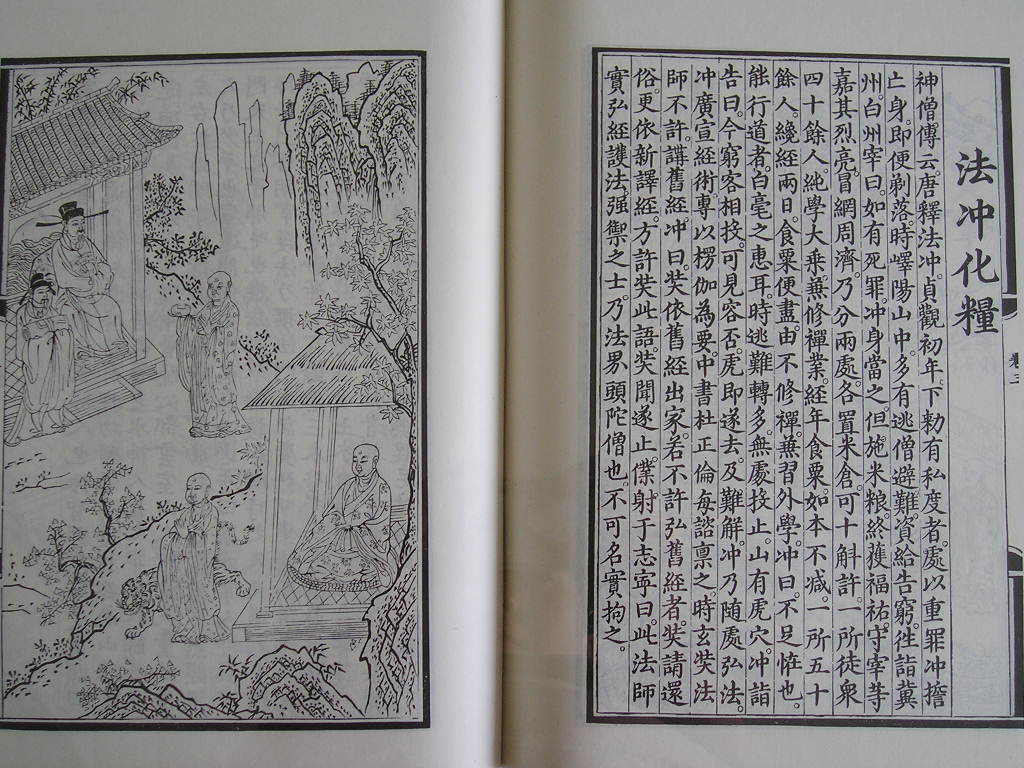 法冲化糧
神僧傳云。唐釋法冲。貞觀初年。下勅有私度者。處以重罪。冲擔
亡身。即便剃落。時嶧陽山中。多有逃僧避難。資給告窮。徃詣冀
州。白州宰曰。如有死罪。冲身當之。但施米粮。終獲福祐。守宰等
嘉其烈亮。冒網周濟。乃分兩處。各置米倉。可十斛許。一所徒衆
四十餘人。純學大乗。兼修禪業。經年食粟。如本不减。一所五十
餘人。纔經兩日。食粟便盡。由不修禪。兼習外學。冲曰。不足恠也。
能行道者。白毫之惠耳。時逃難轉多。無處投止。山有虎穴。冲詣
告曰。今窮客相投。可見容否。虎即遂去。及難解。冲乃随處弘法。
冲廣宣經術。專以楞伽為要。中書杜正倫。每諮禀之。時玄奘法
師不許講舊經。冲曰。奘依舊經出家。若不許弘舊經者。奘請還
俗。更依新譯經。方許奘此語。奘聞遂止。僕射于志寧曰。此法師
實弘經護法。强禦之士。乃法界頭陀僧也。不可名實拘之。
卷三